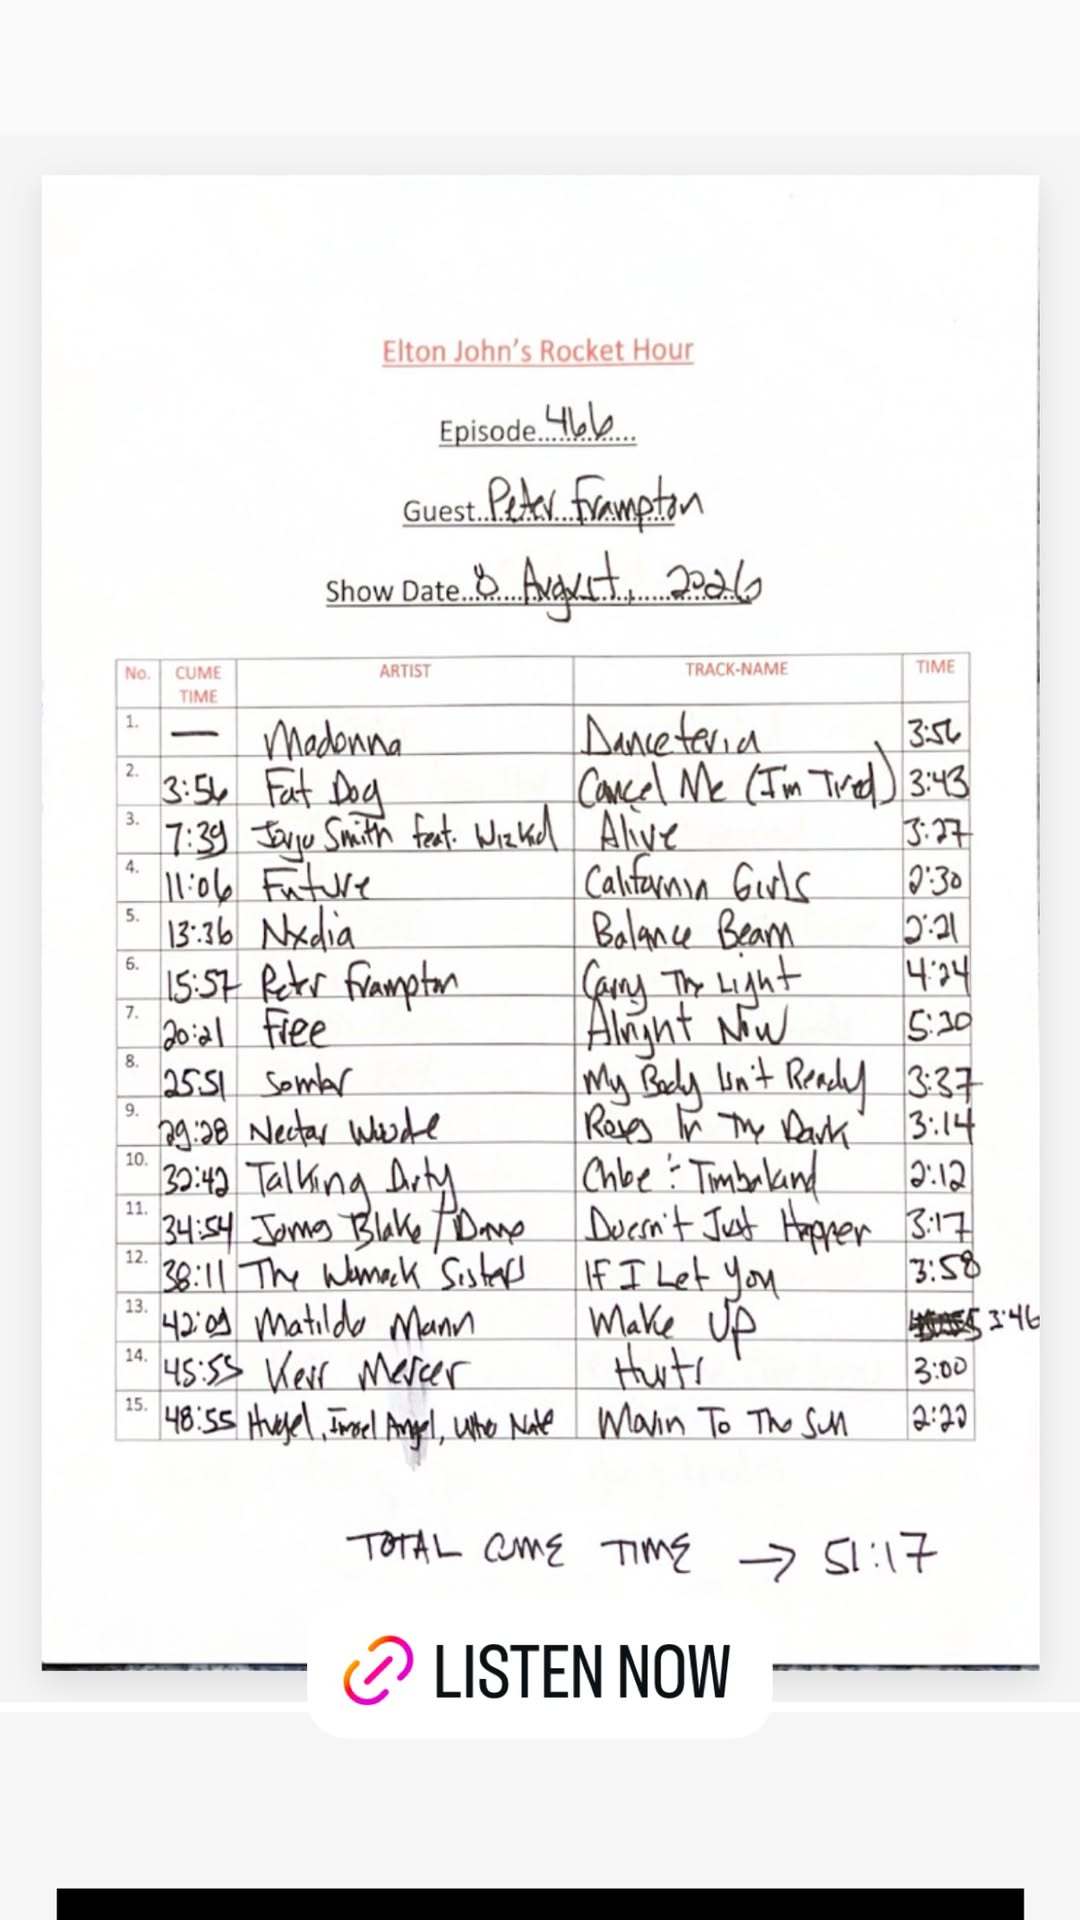 Elton John's Rocket Hour
Episode 466
Guest Peter Frampton
Show Date 8 August, 2026
No. CUME TIME ARTIST TRACK-NAME TIME
1. — Madonna Danceteria 3:56
2. 3:56 Fat Dog Cancel Me (I'm Tired) 3:43
3. 7:39 Jorja Smith feat. Wizkid Alive 3:27
4. 11:06 Future California Girls 2:30
5. 13:36 Nxdia Balance Beam 2:21
6. 15:57 Peter Frampton Carry The Light 4:24
7. 20:21 Free Alright Now 5:30
8. 25:51 Sombr My Body Isn't Ready 3:37
9. 29:28 Nectar Woode Roses In The Dark 3:14
10. 32:42 Talking Dirty Chloe ÷ Timbaland 2:12
11. 34:54 James Blake / Dave Doesn't Just Happen 3:17
12. 38:11 The Womack Sisters If I Let You 3:58
13. 42:09 Matilda Mann Make Up 3:46
14. 45:55 Kerr Mercer Hurts 3:00
15. 48:55 Hugel, Imael Angel, Who Nate Movin To The Sun 2:22
TOTAL CUME TIME → 51:17
LISTEN NOW